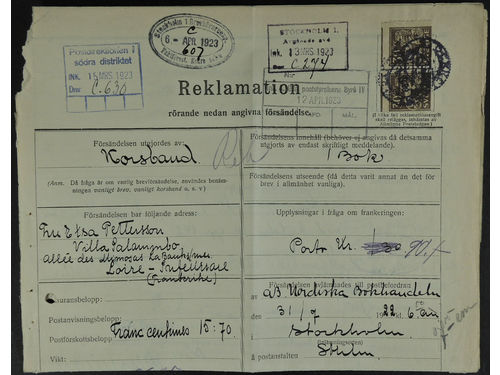 Postdirektionen i
södra distriktet
INK. 15 MRS. 1923
Dnr C.630
Stockholm 1
C
6 - APR 1923
607
STOCKHOLM 1.
Avgående avd
Ink. 13 MRS. 1923
D:nr C.274
12 APR. 1923
Reklamation
rörande nedan angivna försändelse.
Försändelsen utgjordes av
Korsband
Rek
(Anm. Då fråga är om vanlig brevförsändelse, användes benäm-
ningen vanligt brev, vanligt korsband o. s. v.)
Försändelsens innehåll (behöver ej angivas då detsamma
utgjorts av endast skriftligt meddelande).
1 Bok
Försändelsens utseende (då detta varit annat än det för
brev i allmänhet vanliga).
Försändelsen bar följande adress:
Fru Elsa Pettersson
Villa Salammbo
Allée des Mimosas La Baule s/mer
Loire - Inférieure
(Frankrike)
Upplysningar i fråga om frankeringen:
Porto Kr.
Assuransbelopp:
Postanvisningsbelopp:
Postförskottsbelopp:
Franc centimes 15:70
Vikt:
Försändelsen avlämnades till postbefordran
av AB. Nordiska Bokhandeln
31/7 1922 kl. 6 em
Stockholm
å postanstalten Sthlm